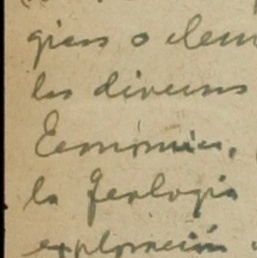 gicas o elem
los diversos
Economía,
la Geología
exploración